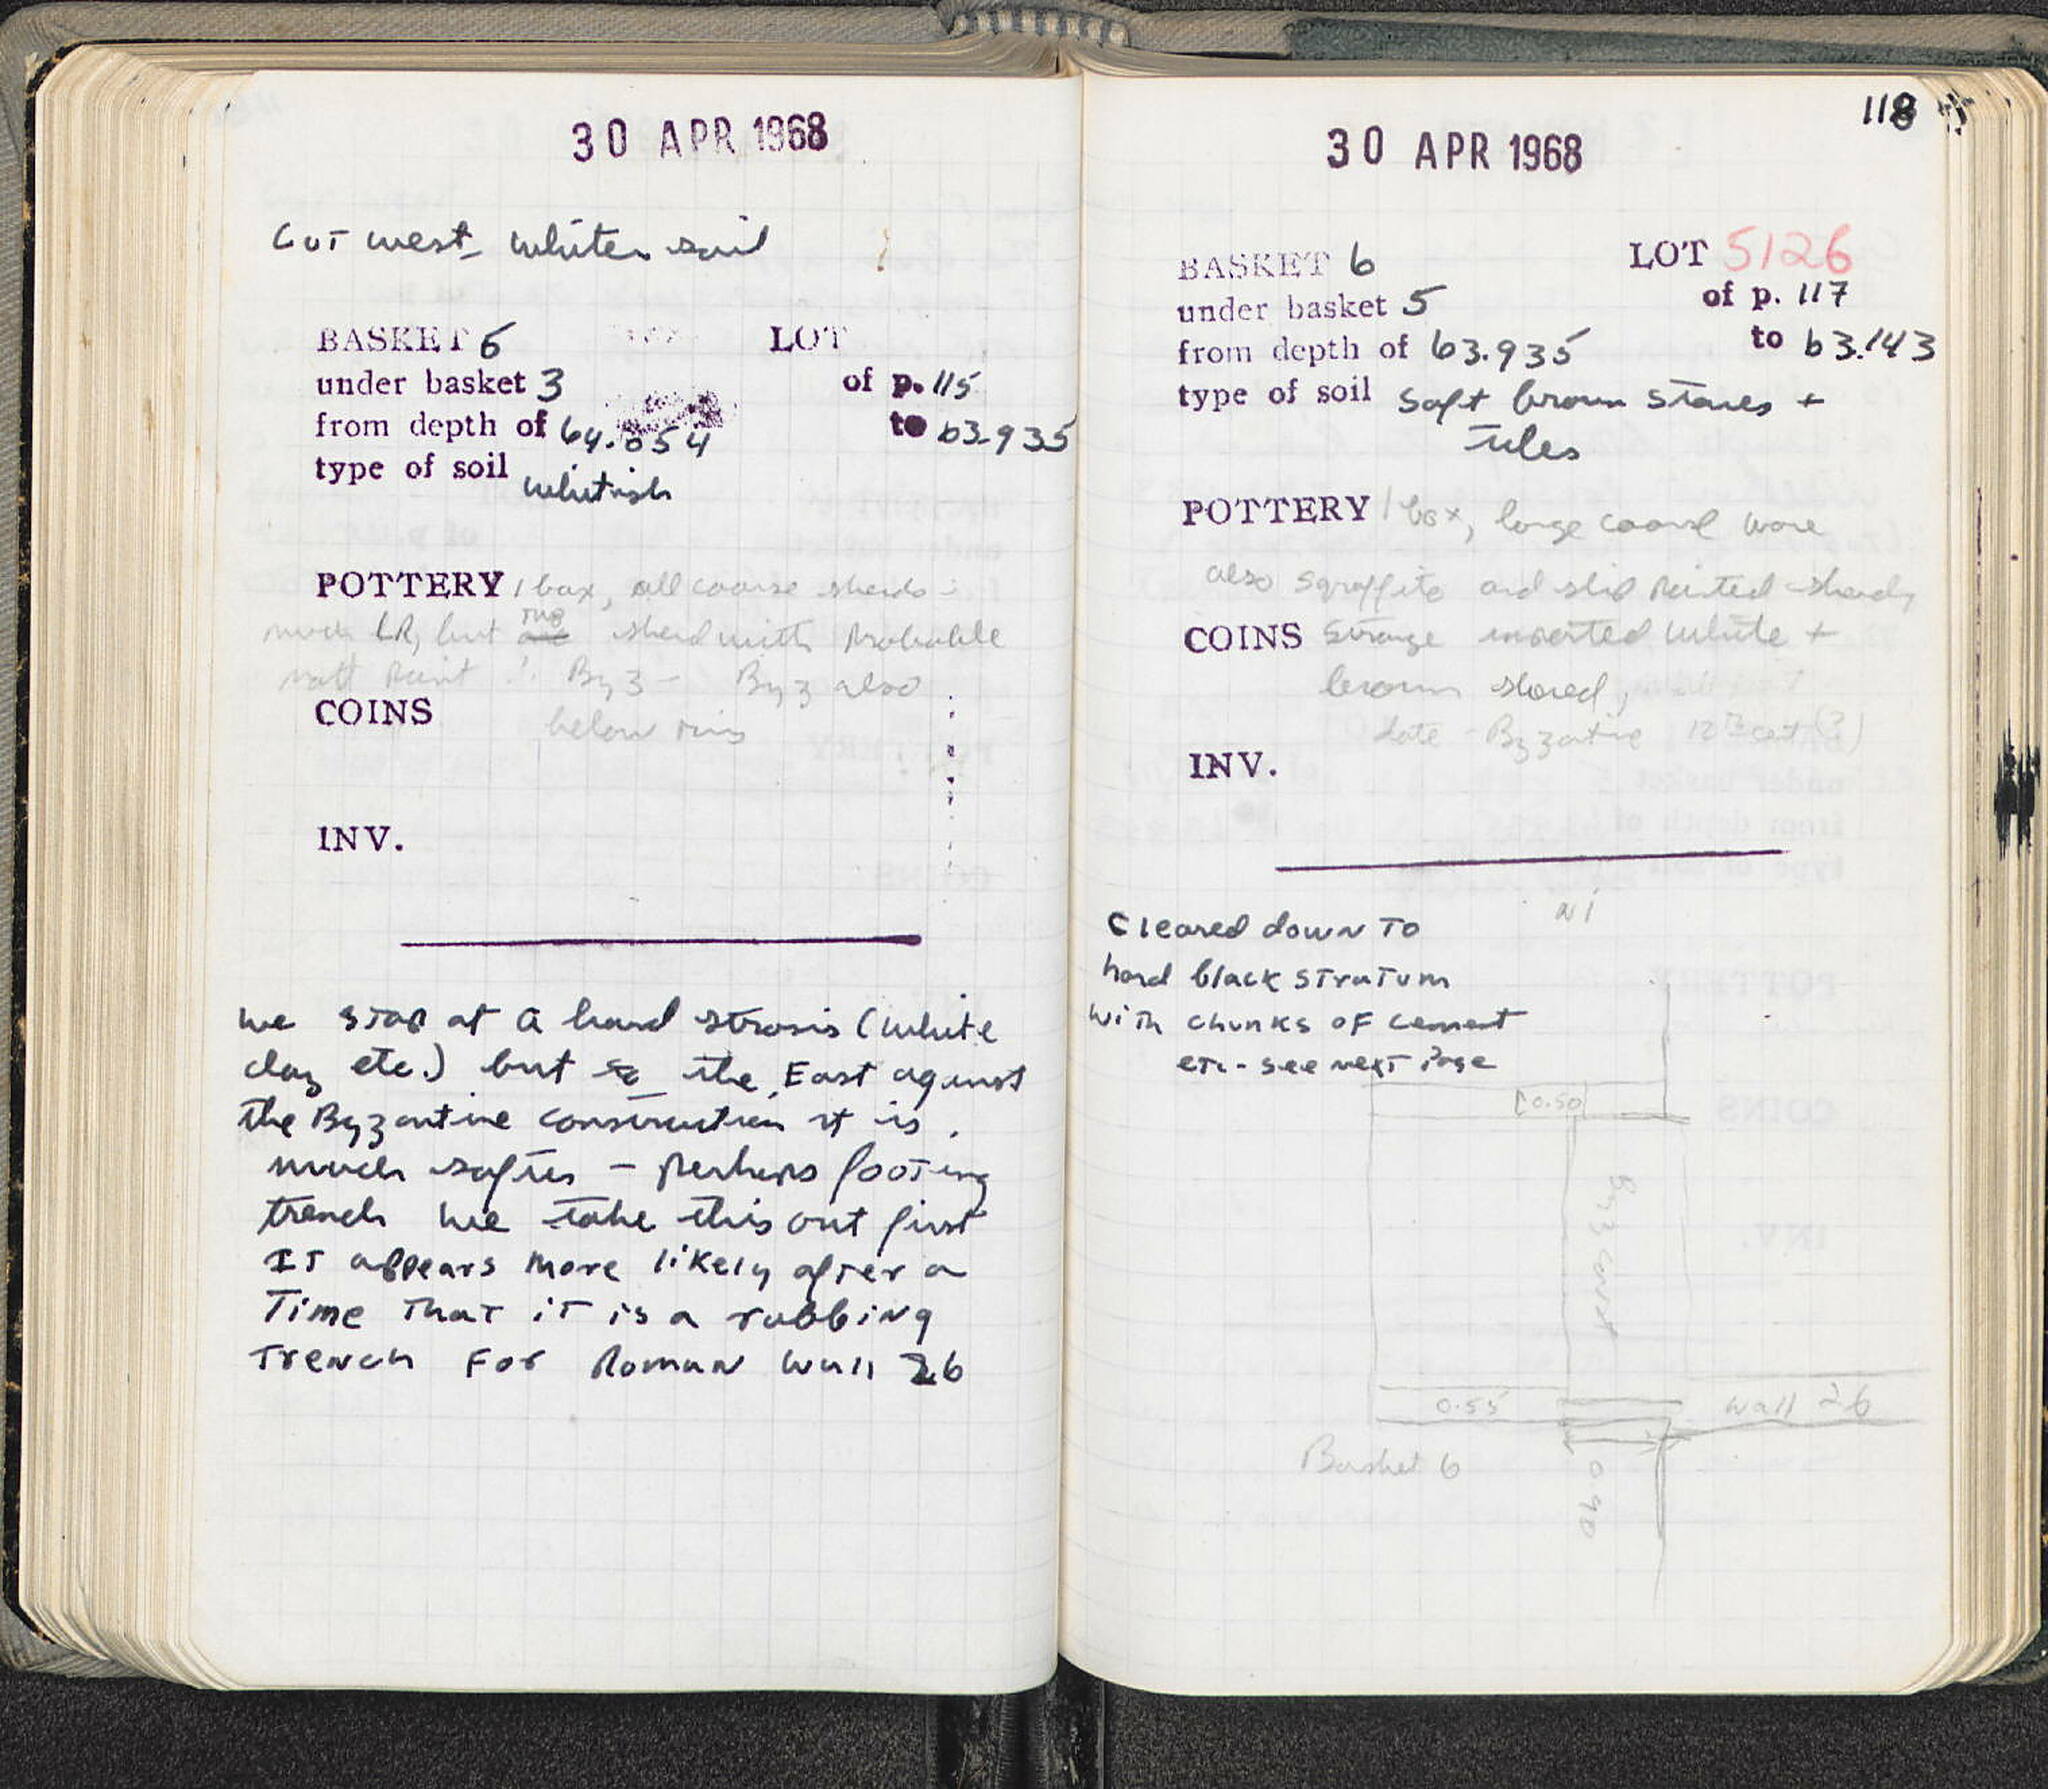 30 APR 1968
Cut west - whiter soil
BASKET 5 LOT
under basket 3 of p. 115
from depth of 64.054 to 63.935
type of soil whitish
POTTERY 1 box, all coarse sherds -
much LR, but rug sherd with probable
matt paint ∴ Byz - Byz also
COINS
below this
INV.
we stop at a hard strosis (white
clay etc.) but to the East against
the Byzantine construction it is
much softer - perhaps footing
trench we take this out first
IT appears more likely after a
Time That iT is a robbing
Trench For Roman wall 26
118
30 APR 1968
BASKET 6 LOT 5126
under basket 5 of p. 117
from depth of 63.935 to 63.143
type of soil soft brown stones +
tiles
POTTERY 1 box, large coarse ware
also sgraffito and slip painted sherds,
COINS strange inverted white +
brown sherd,
date - Byzantine, 12th cent (?)
INV.
Cleared down To
hard black straTum
with chunks oF cement
etc - see next Page
0.50
Byz cut
0.55 wall 26
Basket 6
0.90